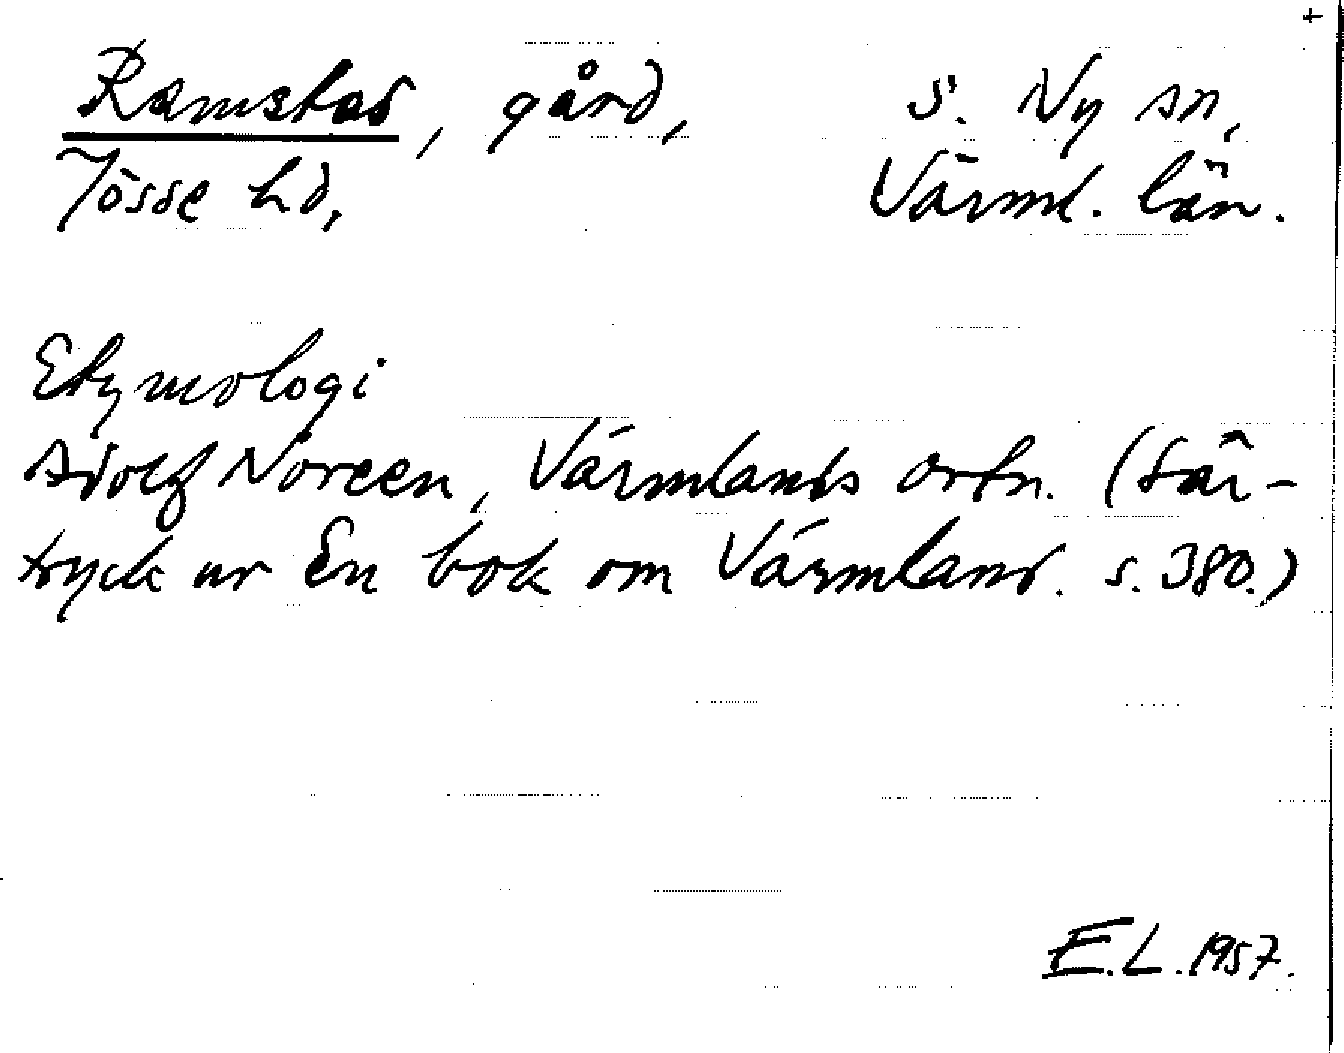 +
Ramstad, gård, S. Ny sn,
Jösse hd, Värml. län.
Etymologi
Adolf Noreen, Värmlands ortn. (Sär-
tryck ur En bok om Värmland. s. 380.)
E.L. 1957.